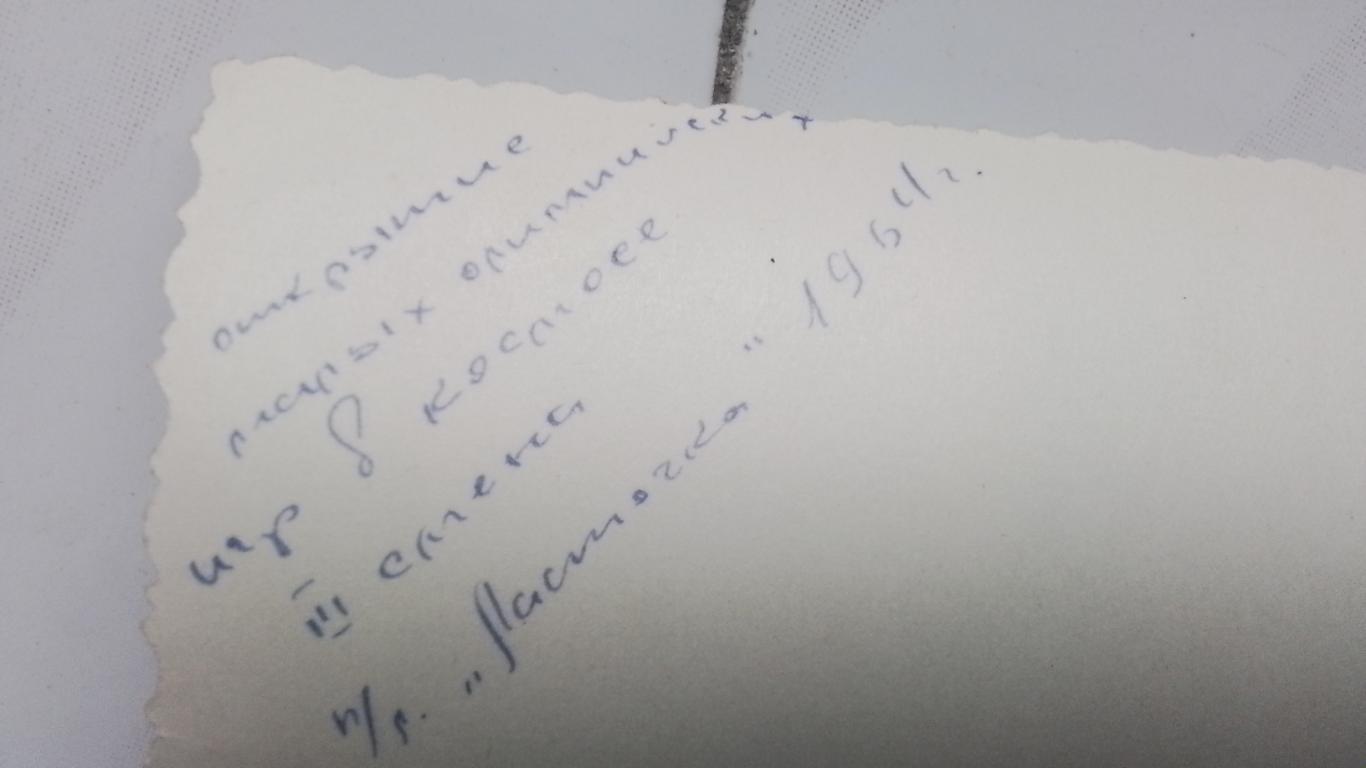 открытие
малых олимпийских
игр в космосе
III смена
п/л. "Ласточка" 1964г.